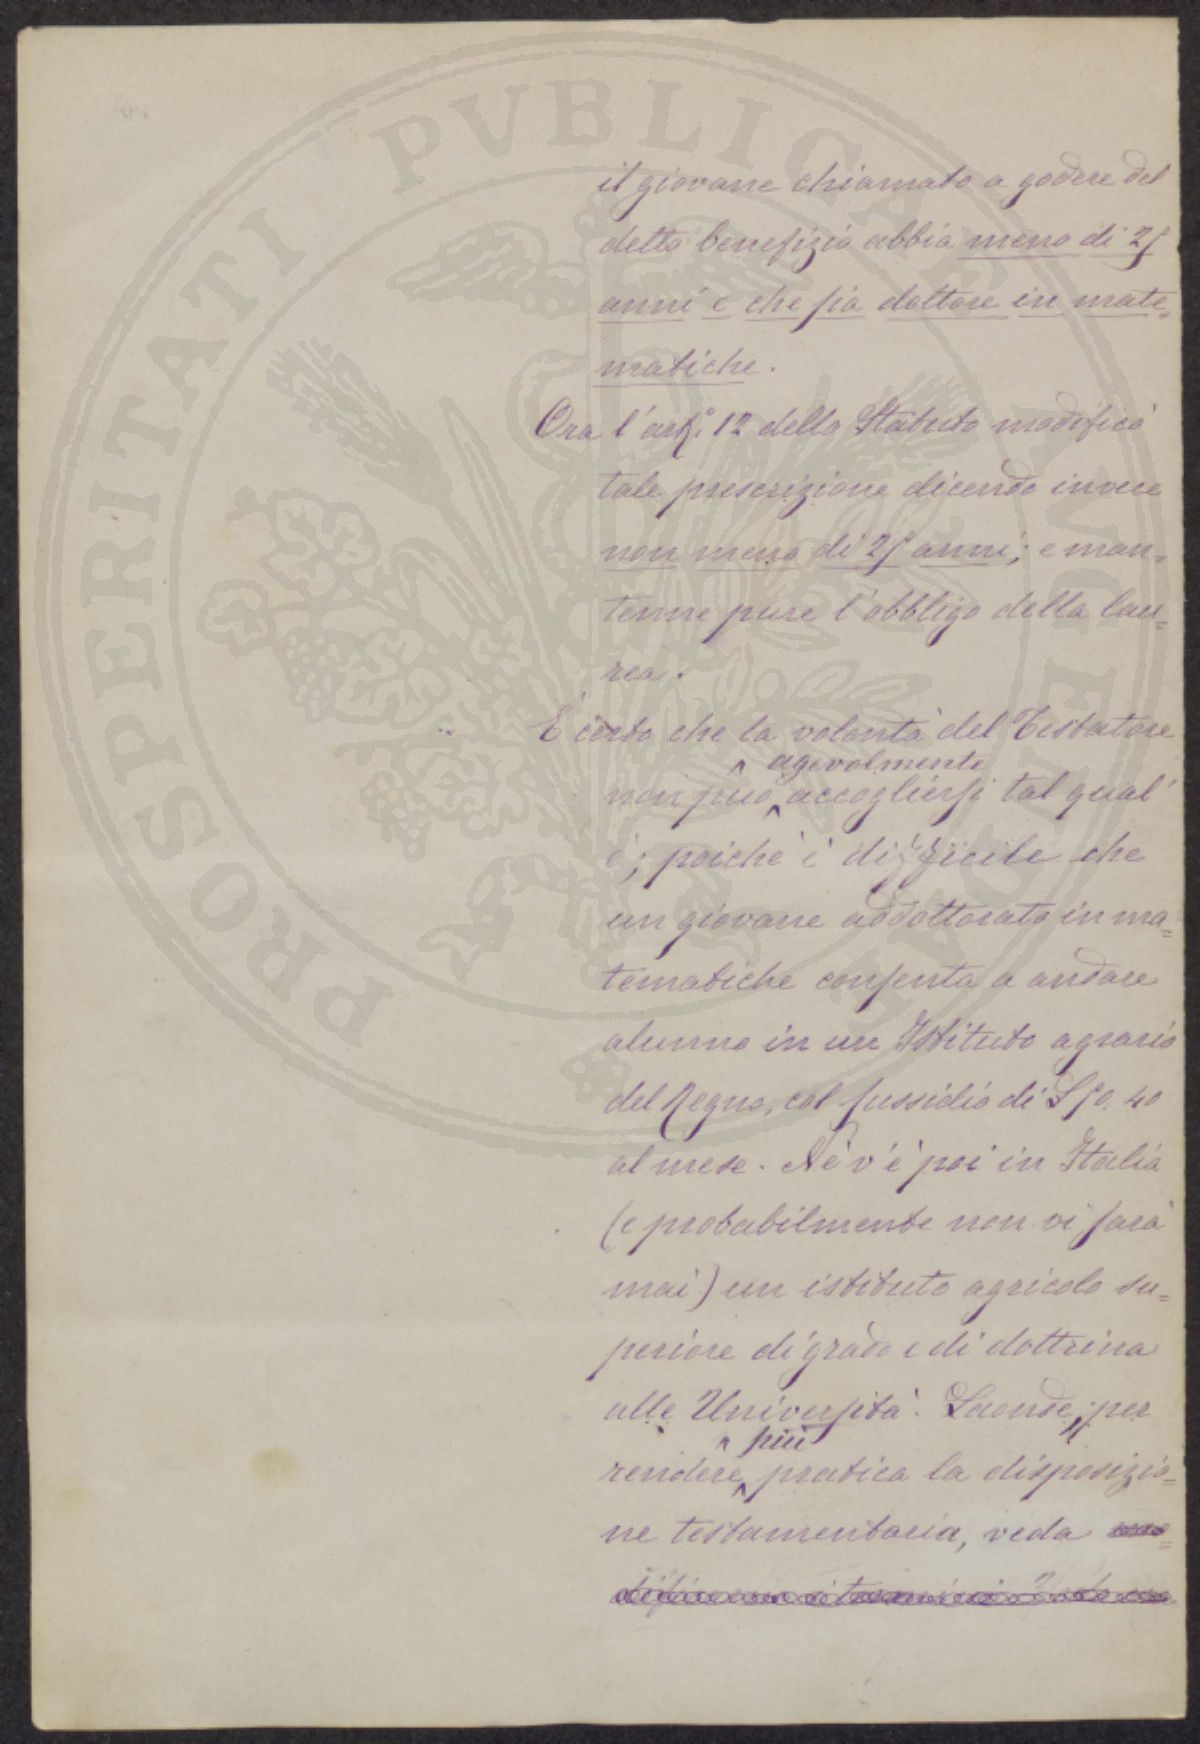 il giovane chiamato a godere del
detto benefizio abbia meno di 25
anni e che sia dottore in mate=
matiche.
Ora l'art.º 12 dello Statuto modificò
tale prescrizione dicendo invece
non meno di 25 anni; e man=
tenne pure l'obbligo della lau=
rea.
È certo che la volontà del Testatore
agevolmente
non può accogliersi tal qual'
è; poichè è difficile che
un giovane addottorato in ma=
tematiche consenta a andare
alunno in un Istituto agrario
del Regno, col sussidio di £ 50. 40
al mese. Nè v'è poi in Italia
(e probabilmente non vi sarà
mai) un istituto agricolo su=
periore di grado e di dottrina
alle Università. Laonde, per
più
rendere pratica la disposizio=
ne testamentaria, veda
PROSPERITATI PVBLICAE AVGENDAE